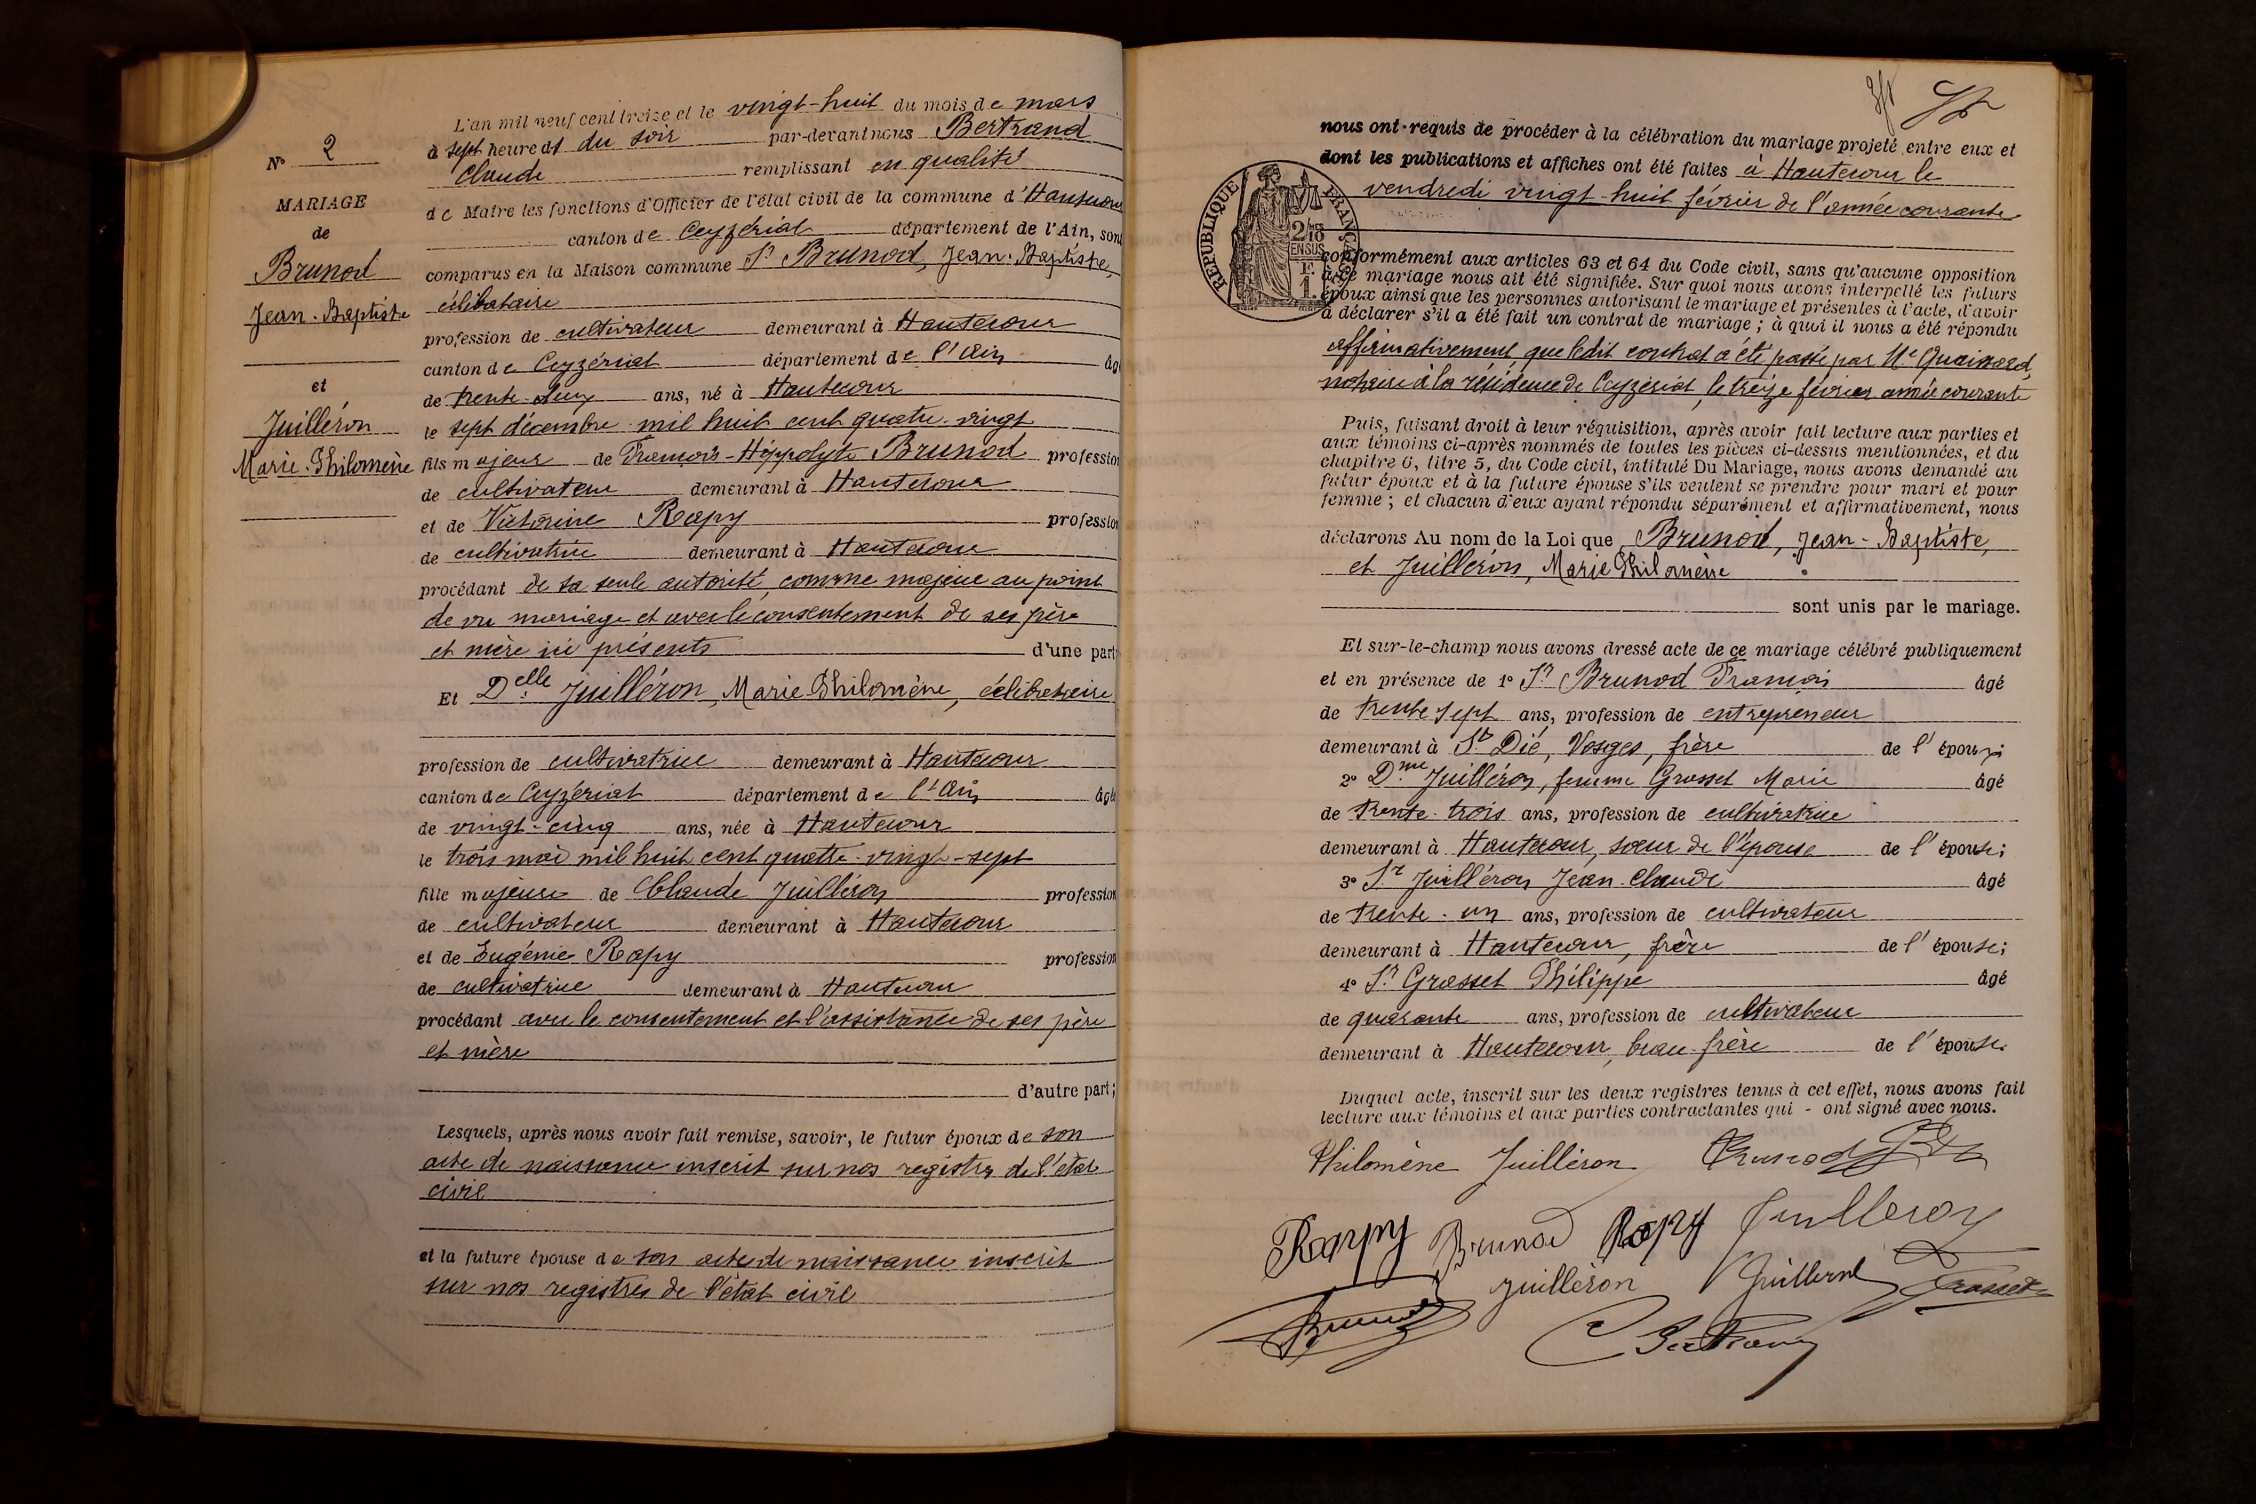 N° 2
MARIAGE
de
Brunod
Jean-Baptiste
et
Juilléron
Marie-Philomène
L'an mil neuf cent treize et le vingt-huit du mois de mars
à sept heures du soir par-devant nous Bertrand
Claude remplissant en qualité
de Maire les fonctions d'Officier de l'état civil de la commune d'Hautecour
canton de Ceyzériat département de l'Ain, sont
comparus en la Maison commune Sr Brunod, Jean-Baptiste,
célibataire
profession de cultivateur demeurant à Hautecour
canton de Ceyzériat département de l'Ain âgé
de trente-deux ans, né à Hautecour
le sept décembre mil huit cent quatre-vingt
fils majeur de François-Hippolyte Brunod profession
de cultivateur demeurant à Hautecour
et de Victorine Rapy profession
de cultivatrice demeurant à Hautecour
procédant de sa seule autorité, comme majeur au point
de vu mariage et avec le consentement de ses père
et mère ici présents d'une part
Et Delle Juilléron, Marie Philomène, célibataire
profession de cultivatrice demeurant à Hautecour
canton de Ceyzériat département de l'Ain âgée
de vingt-cinq ans, née à Hautecour
le trois mai mil huit cent quatre-vingt-sept
fille majeure de Claude Juilléron profession
de cultivateur demeurant à Hautecour
et de Eugénie Rapy profession
de cultivatrice demeurant à Hautecour
procédant avec le consentement et l'assistance de ses père
et mère
d'autre part;
Lesquels, après nous avoir fait remise, savoir, le futur époux de son
acte de naissance inscrit sur nos registres de l'état
civil
et la future épouse de son acte de naissance inscrit
sur nos registres de l'état civil
nous ont requis de procéder à la célébration du mariage projeté entre eux et
dont les publications et affiches ont été faites à Hautecour le
vendredi vingt-huit février de l'année courante
REPUBLIQUE FRANÇAISE
2/10 EN SUS
1 F.
conformément aux articles 63 et 64 du Code civil, sans qu'aucune opposition
à ce mariage nous ait été signifiée. Sur quoi nous avons interpellé les futurs
époux ainsi que les personnes autorisant le mariage et présentes à l'acte, d'avoir
à déclarer s'il a été fait un contrat de mariage; à quoi il nous a été répondu
affirmativement que ledit contrat a été passé par Me Quainard,
notaire à la résidence de Ceyzériat, le treize février année courante
Puis, faisant droit à leur réquisition, après avoir fait lecture aux parties et
aux témoins ci-après nommés de toutes les pièces ci-dessus mentionnées, et du
chapitre 6, titre 5, du Code civil, intitulé Du Mariage, nous avons demandé au
futur époux et à la future épouse s'ils veulent se prendre pour mari et pour
femme; et chacun d'eux ayant répondu séparément et affirmativement, nous
déclarons Au nom de la Loi que Brunod, Jean-Baptiste,
et Juilléron, Marie Philomène
sont unis par le mariage.
Et sur-le-champ nous avons dressé acte de ce mariage célébré publiquement
et en présence de 1° Sr Brunod François âgé
de trente sept ans, profession de entrepreneur
demeurant à St Dié, Vosges, frère de l'époux;
2° Dme Juilléron, femme Grosset Marie âgé
de trente-trois ans, profession de cultivatrice
demeurant à Hautecour, sœur de l'épouse de l'épouse;
3° Sr Juilléron Jean-Claude âgé
de trente-un ans, profession de cultivateur
demeurant à Hautecour, frère de l'épouse;
4° Sr Grosset Philippe âgé
de quarante ans, profession de cultivateur
demeurant à Hautecour, beau-frère de l'épouse.
Duquel acte, inscrit sur les deux registres tenus à cet effet, nous avons fait
lecture aux témoins et aux parties contractantes qui - ont signé avec nous.
Philomène Juilléron Brunod
Rapy Brunod Rapy Juilleron
Brunod Juilléron Juilleron Grosset
C Bertrand